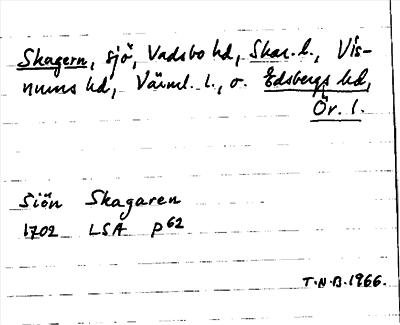 Skagern, sjö, Vadsbo hd, Skar. l., Vis-
nums hd, Värml. l., o. Edsbergs hd,
Ör. l.
Siön Skagaren
1702 LSA p 62
T.N.B. 1966.